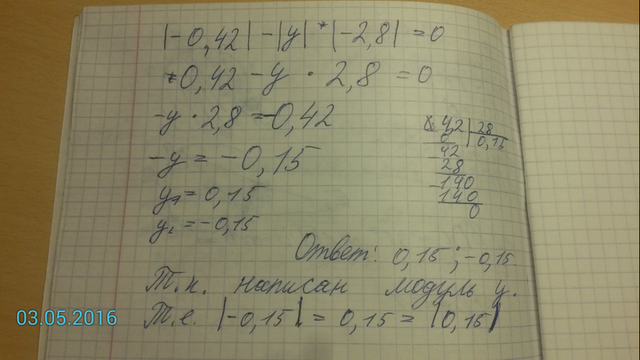 |-0,42| - |y| * |-2,8| = 0
0,42 - y · 2,8 = 0
-y · 2,8 = -0,42
-y = -0,15
y₁ = 0,15
y₂ = -0,15
4,2 | 28
0 | 0,15
42
- 28
- 140
140
0
Ответ: 0,15; -0,15
Т.к. написан модуль y.
Т.е. |-0,15| = 0,15 = |0,15|
03.05.2016